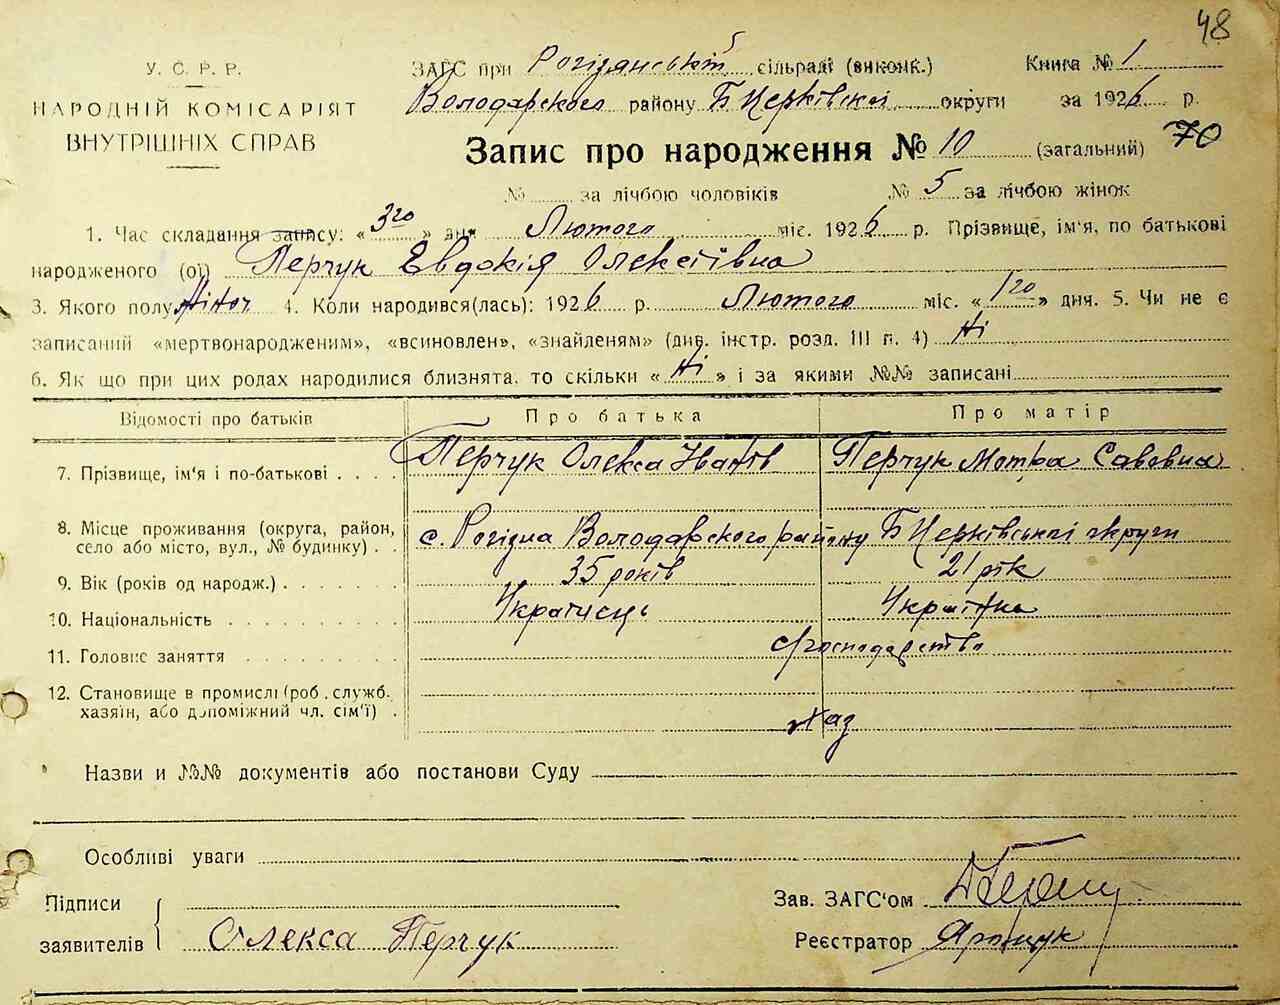 48
У. С. Р. Р.
НАРОДНІЙ КОМІСАРІЯТ
ВНУТРІШНІХ СПРАВ
ЗАГС при Рогізянській сільраді (виконк.) Книга № 1
Володарского району Б Церківскої округи за 1926 р.
Запис про народження № 10 (загальний) 70
№ за лічбою чоловіків № 5 за лічбою жінок
1. Час складання запису: « 3го » дня Лютого міс. 1926 р. Прізвище, ім'я, по батькові
народженого (ої) Перчук Евдокія Олексіївна
3. Якого полу Жіноч 4. Коли народився(лась): 1926 р. Лютого міс. « 1го » дня. 5. Чи не є
записаний «мертвонародженим», «всиновлен», «знайденям» (див. інстр. розд. III п. 4) Ні
6. Як що при цих родах народилися близнята, то скільки « Ні » і за якими №№ записані
Відомості про батьків Про батька Про матір
7. Прізвище, ім'я і по-батькові Перчук Олекса Іванів Перчук Мотра Савовна
8. Місце проживання (округа, район,
село або місто, вул., № будинку) с. Рогізна Володарского району Б Церківської округи
9. Вік (років од народж.) 35 років 21 рік
10. Національність Українець Українка
11. Головне заняття господарство
12. Становище в промислі (роб. службб.
хазяїн, або допоміжний чл. сім'ї) Хаз
Назви и №№ документів або постанови Суду
Особливі уваги
Підписи
заявителів Олекса Перчук
Зав. ЗАГС'ом
Реєстратор